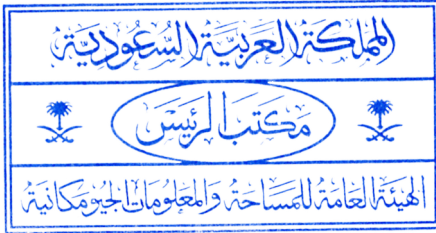 المملكة العربية السعودية
مكتب الرئيس
الهيئة العامة للمساحة والمعلومات الجيومكانية